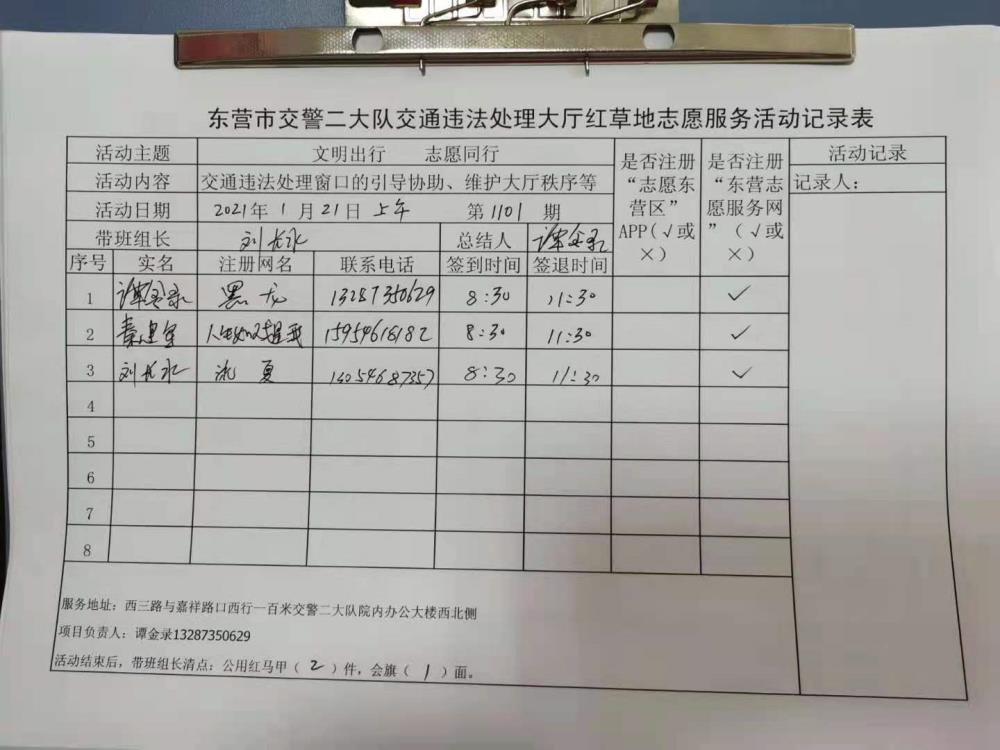 东营市交警二大队交通违法处理大厅红草地志愿服务活动记录表
活动主题 文明出行 志愿同行 是否注册“志愿东营区”APP(√或×) 是否注册“东营志愿服务网”(√或×) 活动记录
活动内容 交通违法处理窗口的引导协助、维护大厅秩序等 记录人：
活动日期 2021年 1 月 21日 上午 第 1101 期
带班组长 刘长水 总结人 谭金录
序号 实名 注册网名 联系电话 签到时间 签退时间
1 谭金录 黑龙 13287350629 8:30 11:30 ✓
2 秦 15954616182 8:30 11:30 ✓
3 刘长水 夏 13054687357 8:30 11:30 ✓
4
5
6
7
8
服务地址：西三路与嘉祥路口西行一百米交警二大队院内办公大楼西北侧
项目负责人：谭金录13287350629
活动结束后，带班组长清点：公用红马甲（ 2 ）件，会旗（ 1 ）面。